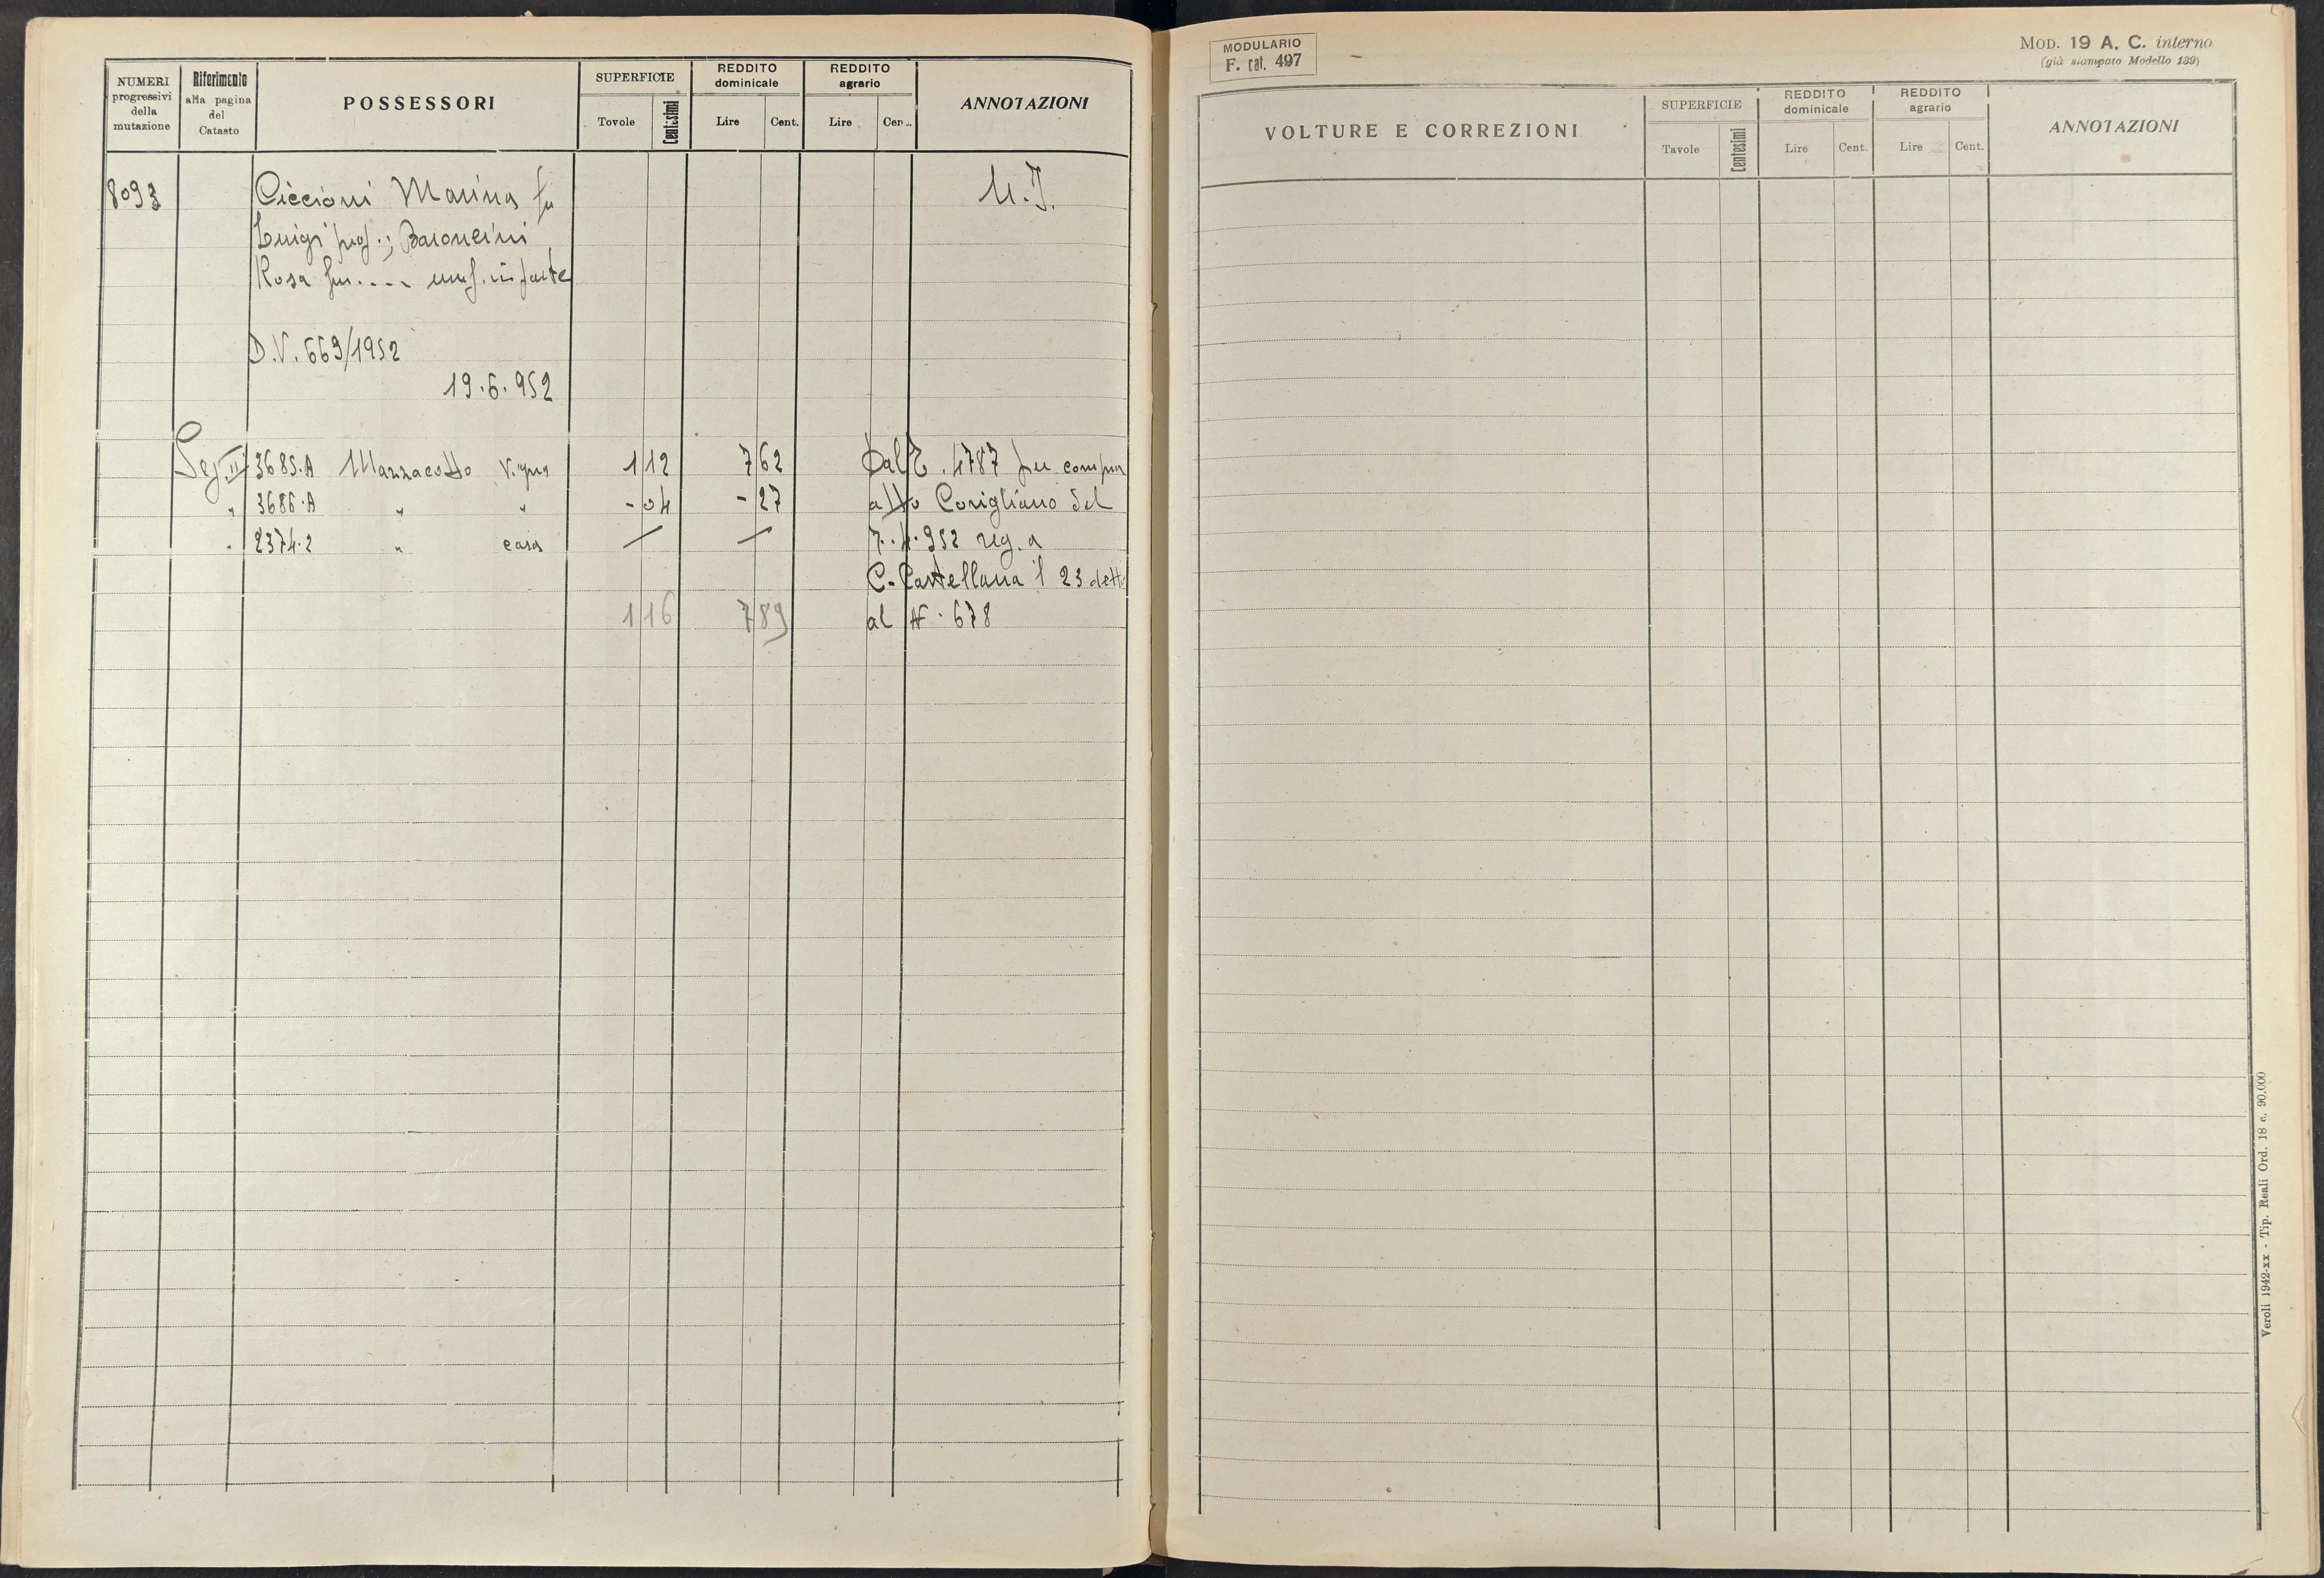 NUMERI progressivi della mutazione
Riferimento alla pagina del Catasto
POSSESSORI
SUPERFICIE
Tovole Centesimi
REDDITO dominicale
Lire Cent.
REDDITO agrario
Lire Cen..
ANNOTAZIONI
8093 Ciccioni Marina fu
Luigi prop.; Baroncini
Rosa fu.... usuf. in parte
U.I.
D.V. 669/1952
19.6.952
Sez. II 3685.A Mazzacotto Vigna 1 12 7 62 Dal . 4787 per compra
" 3686.A " " - 04 - 27 atto Corigliano del
" 2374.2 " casa / / 7.4.952 reg. a
C. Castellana il 23 detto
1 16 7 89 al N. 678
MODULARIO
F. cat. 497
MOD. 19 A. C. interno
(già stampato Modello 139)
VOLTURE E CORREZIONI
SUPERFICIE
Tavole Centesimi
REDDITO dominicale
Lire Cent.
REDDITO agrario
Lire Cent.
ANNOTAZIONI
Veroli 1942-xx - Tip. Reali Ord. 18 c. 90.000